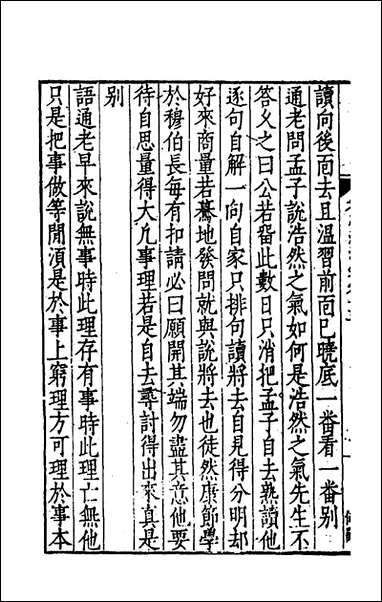 讀向後面去且溫習前面已曉底一番看一番别
通老問孟子說浩然之氣如何是浩然之氣先生不
答久之曰公若留此數日只消把孟子自去熟讀他
逐句自解一向自家只排句讀將去自見得分明却
好來商量若驀地發問就與說將去也徒然康節學
於穆伯長每有扣請必曰願開其端勿盡其意他要
待自思量得大凡事理若是自去尋討得出來真是
别
語通老早來說無事時此理存有事時此理亡無他
只是把事做等閒須是於事上窮理方可理於事本